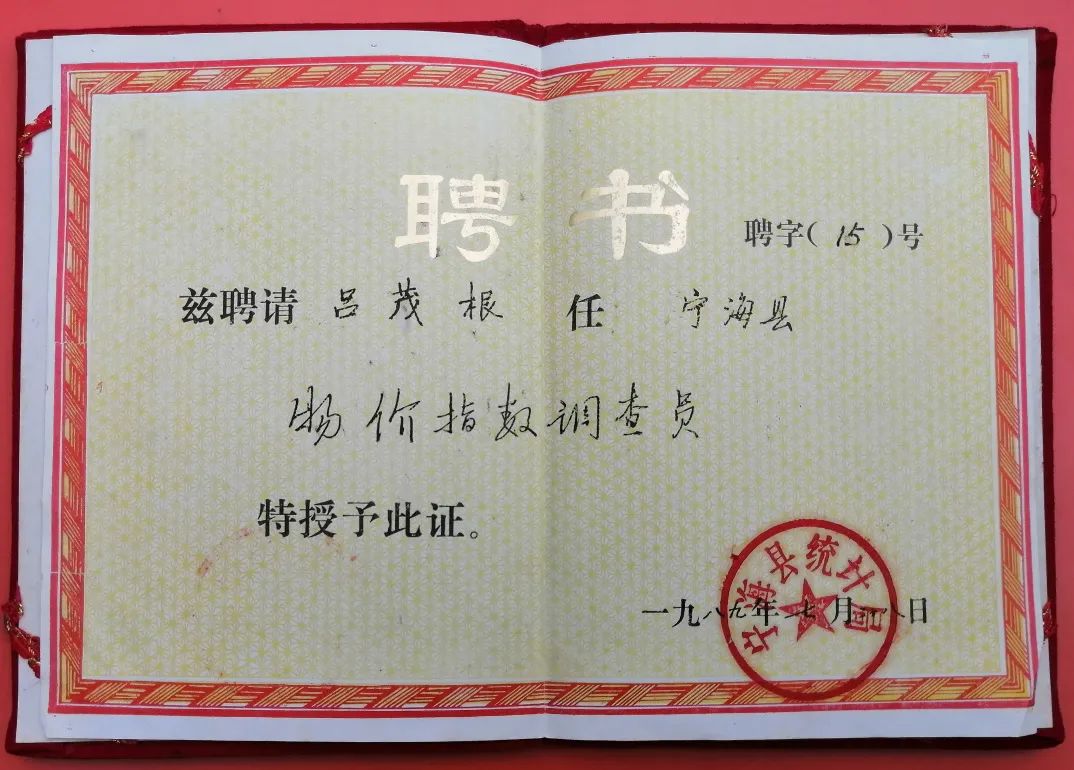 聘书
聘字(15)号
兹聘请 吕茂根 任 宁海县
物价指数调查员
特授予此证。
一九八九年七月 八日
宁海县统计局